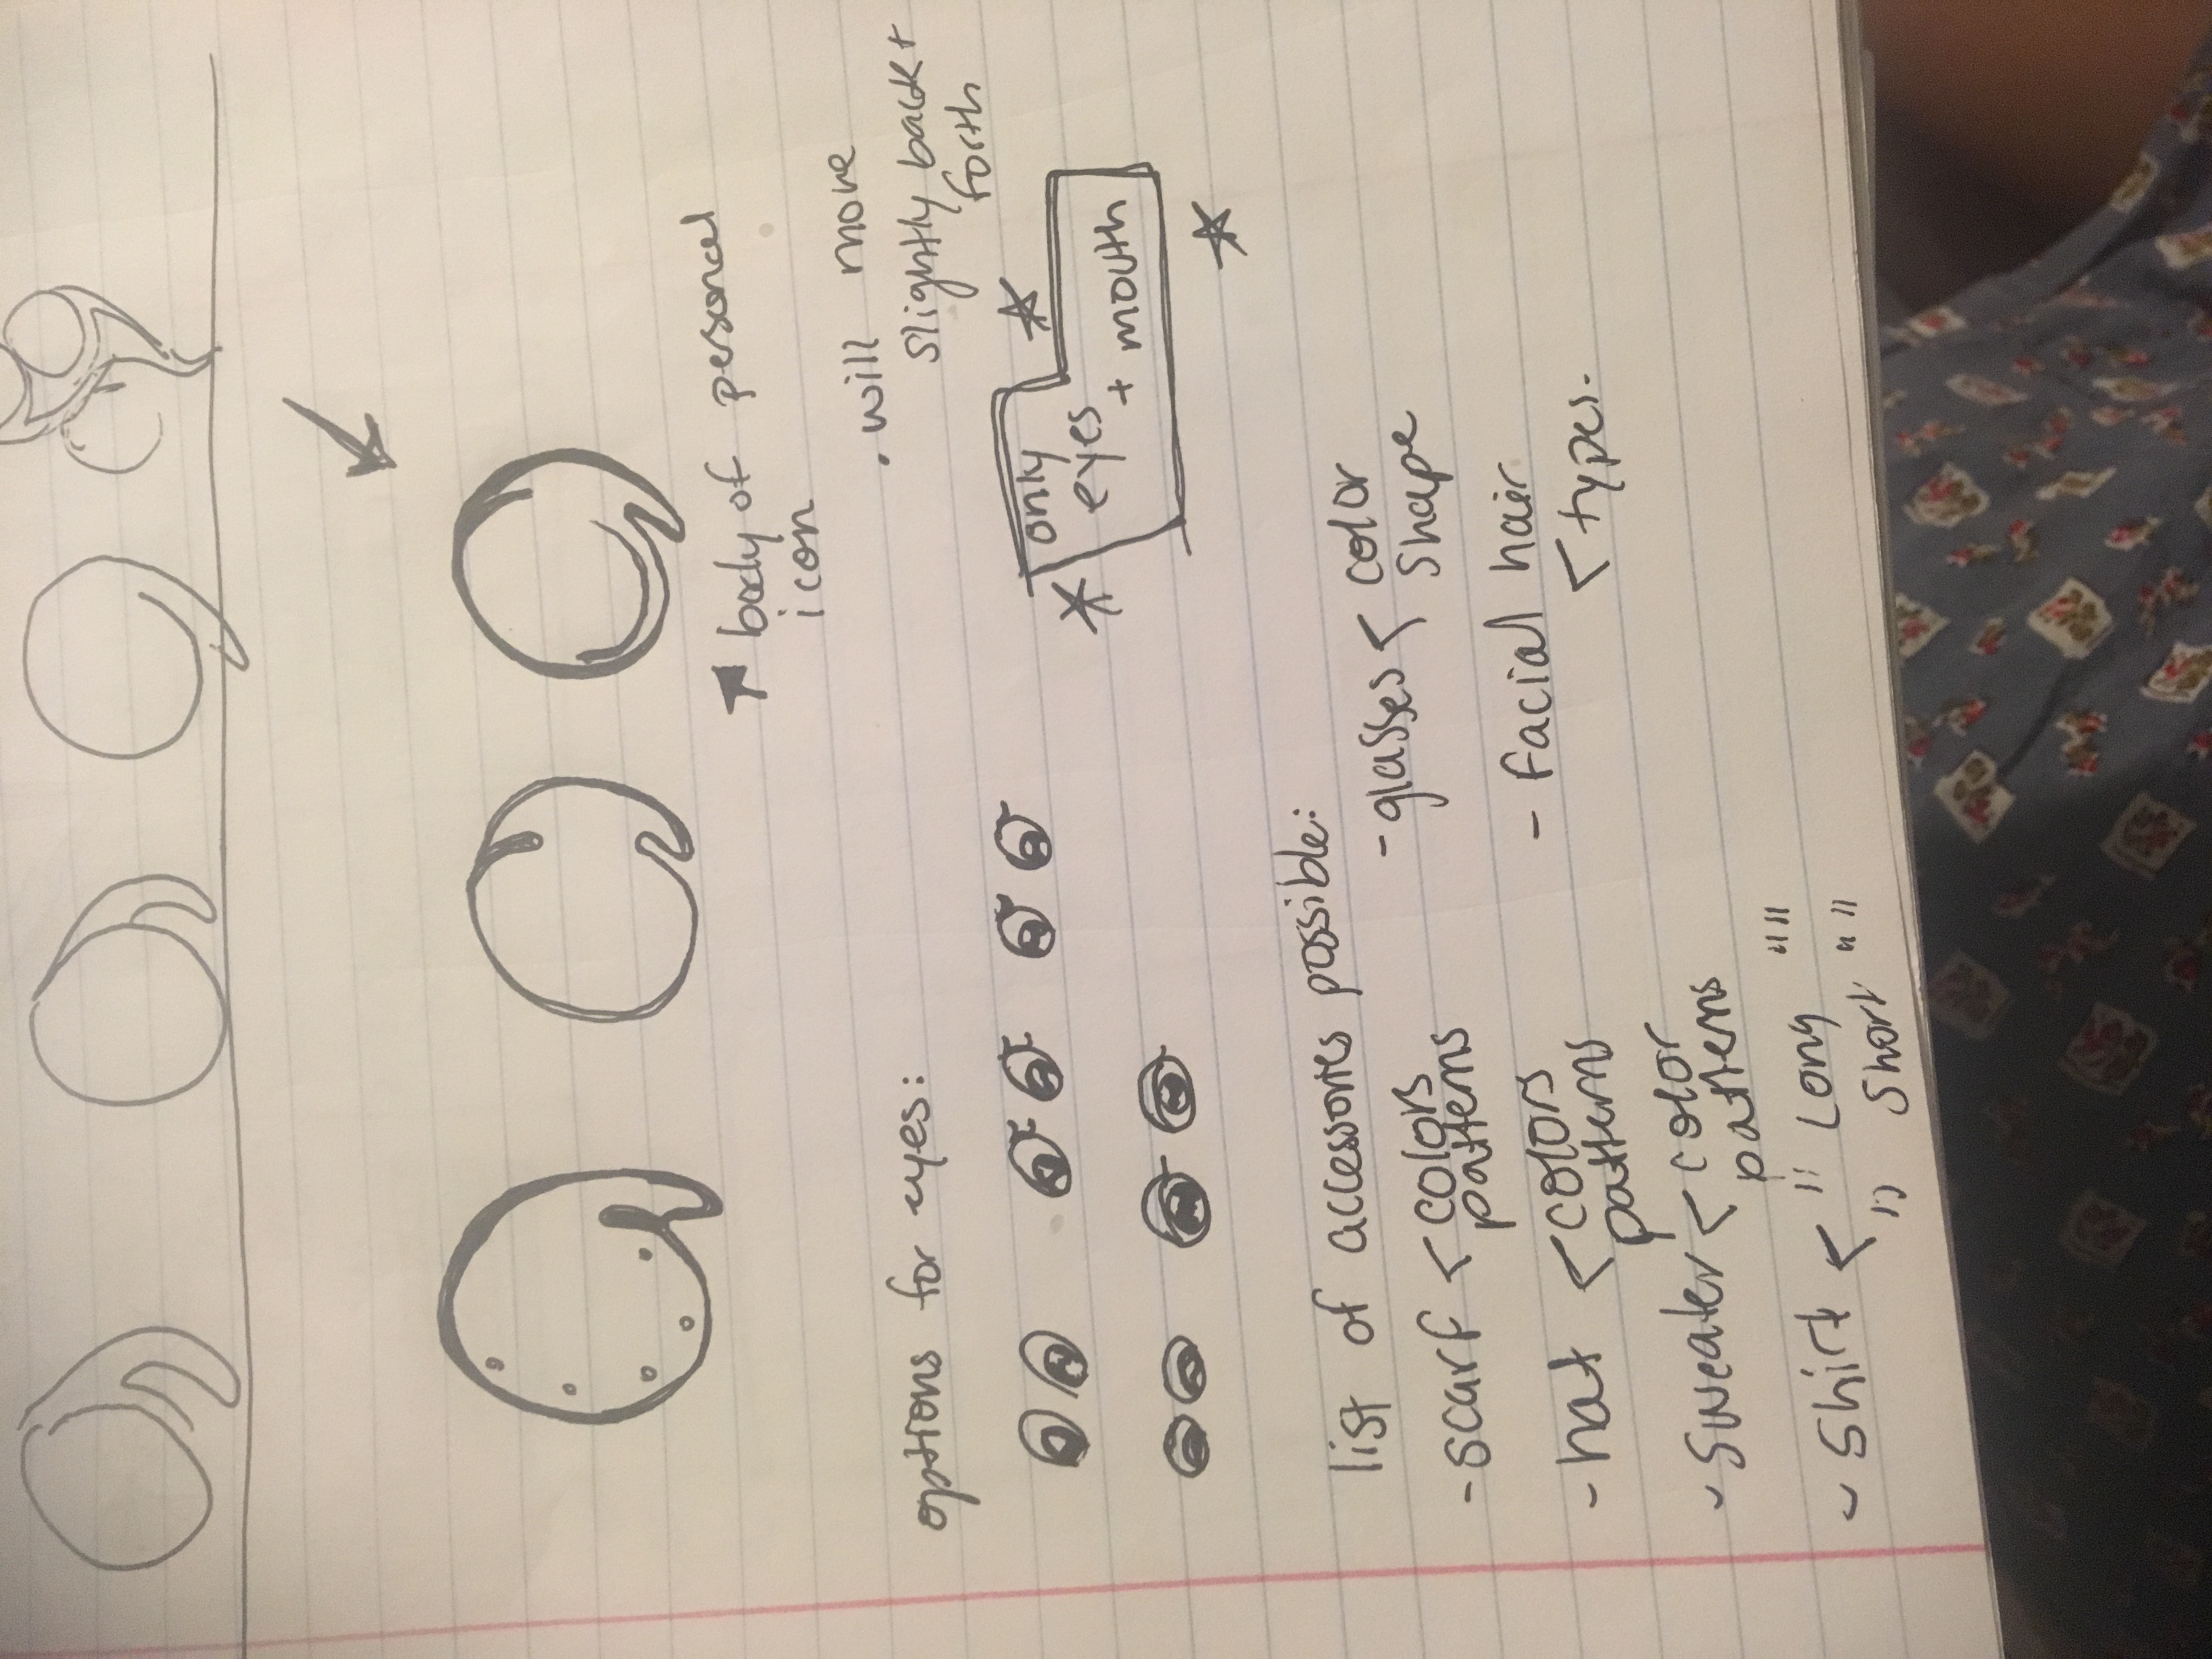 body of personal
icon
. will move
slightly back +
forth
options for eyes:
only
eyes
+ mouth
list of accessories possible:
- scarf < colors
patterns
- hat < colors
patterns
- sweater < color
patterns
- Shirt < " Long " "
" Short " "
- glasses < color
Shape
- facial hair
< types.